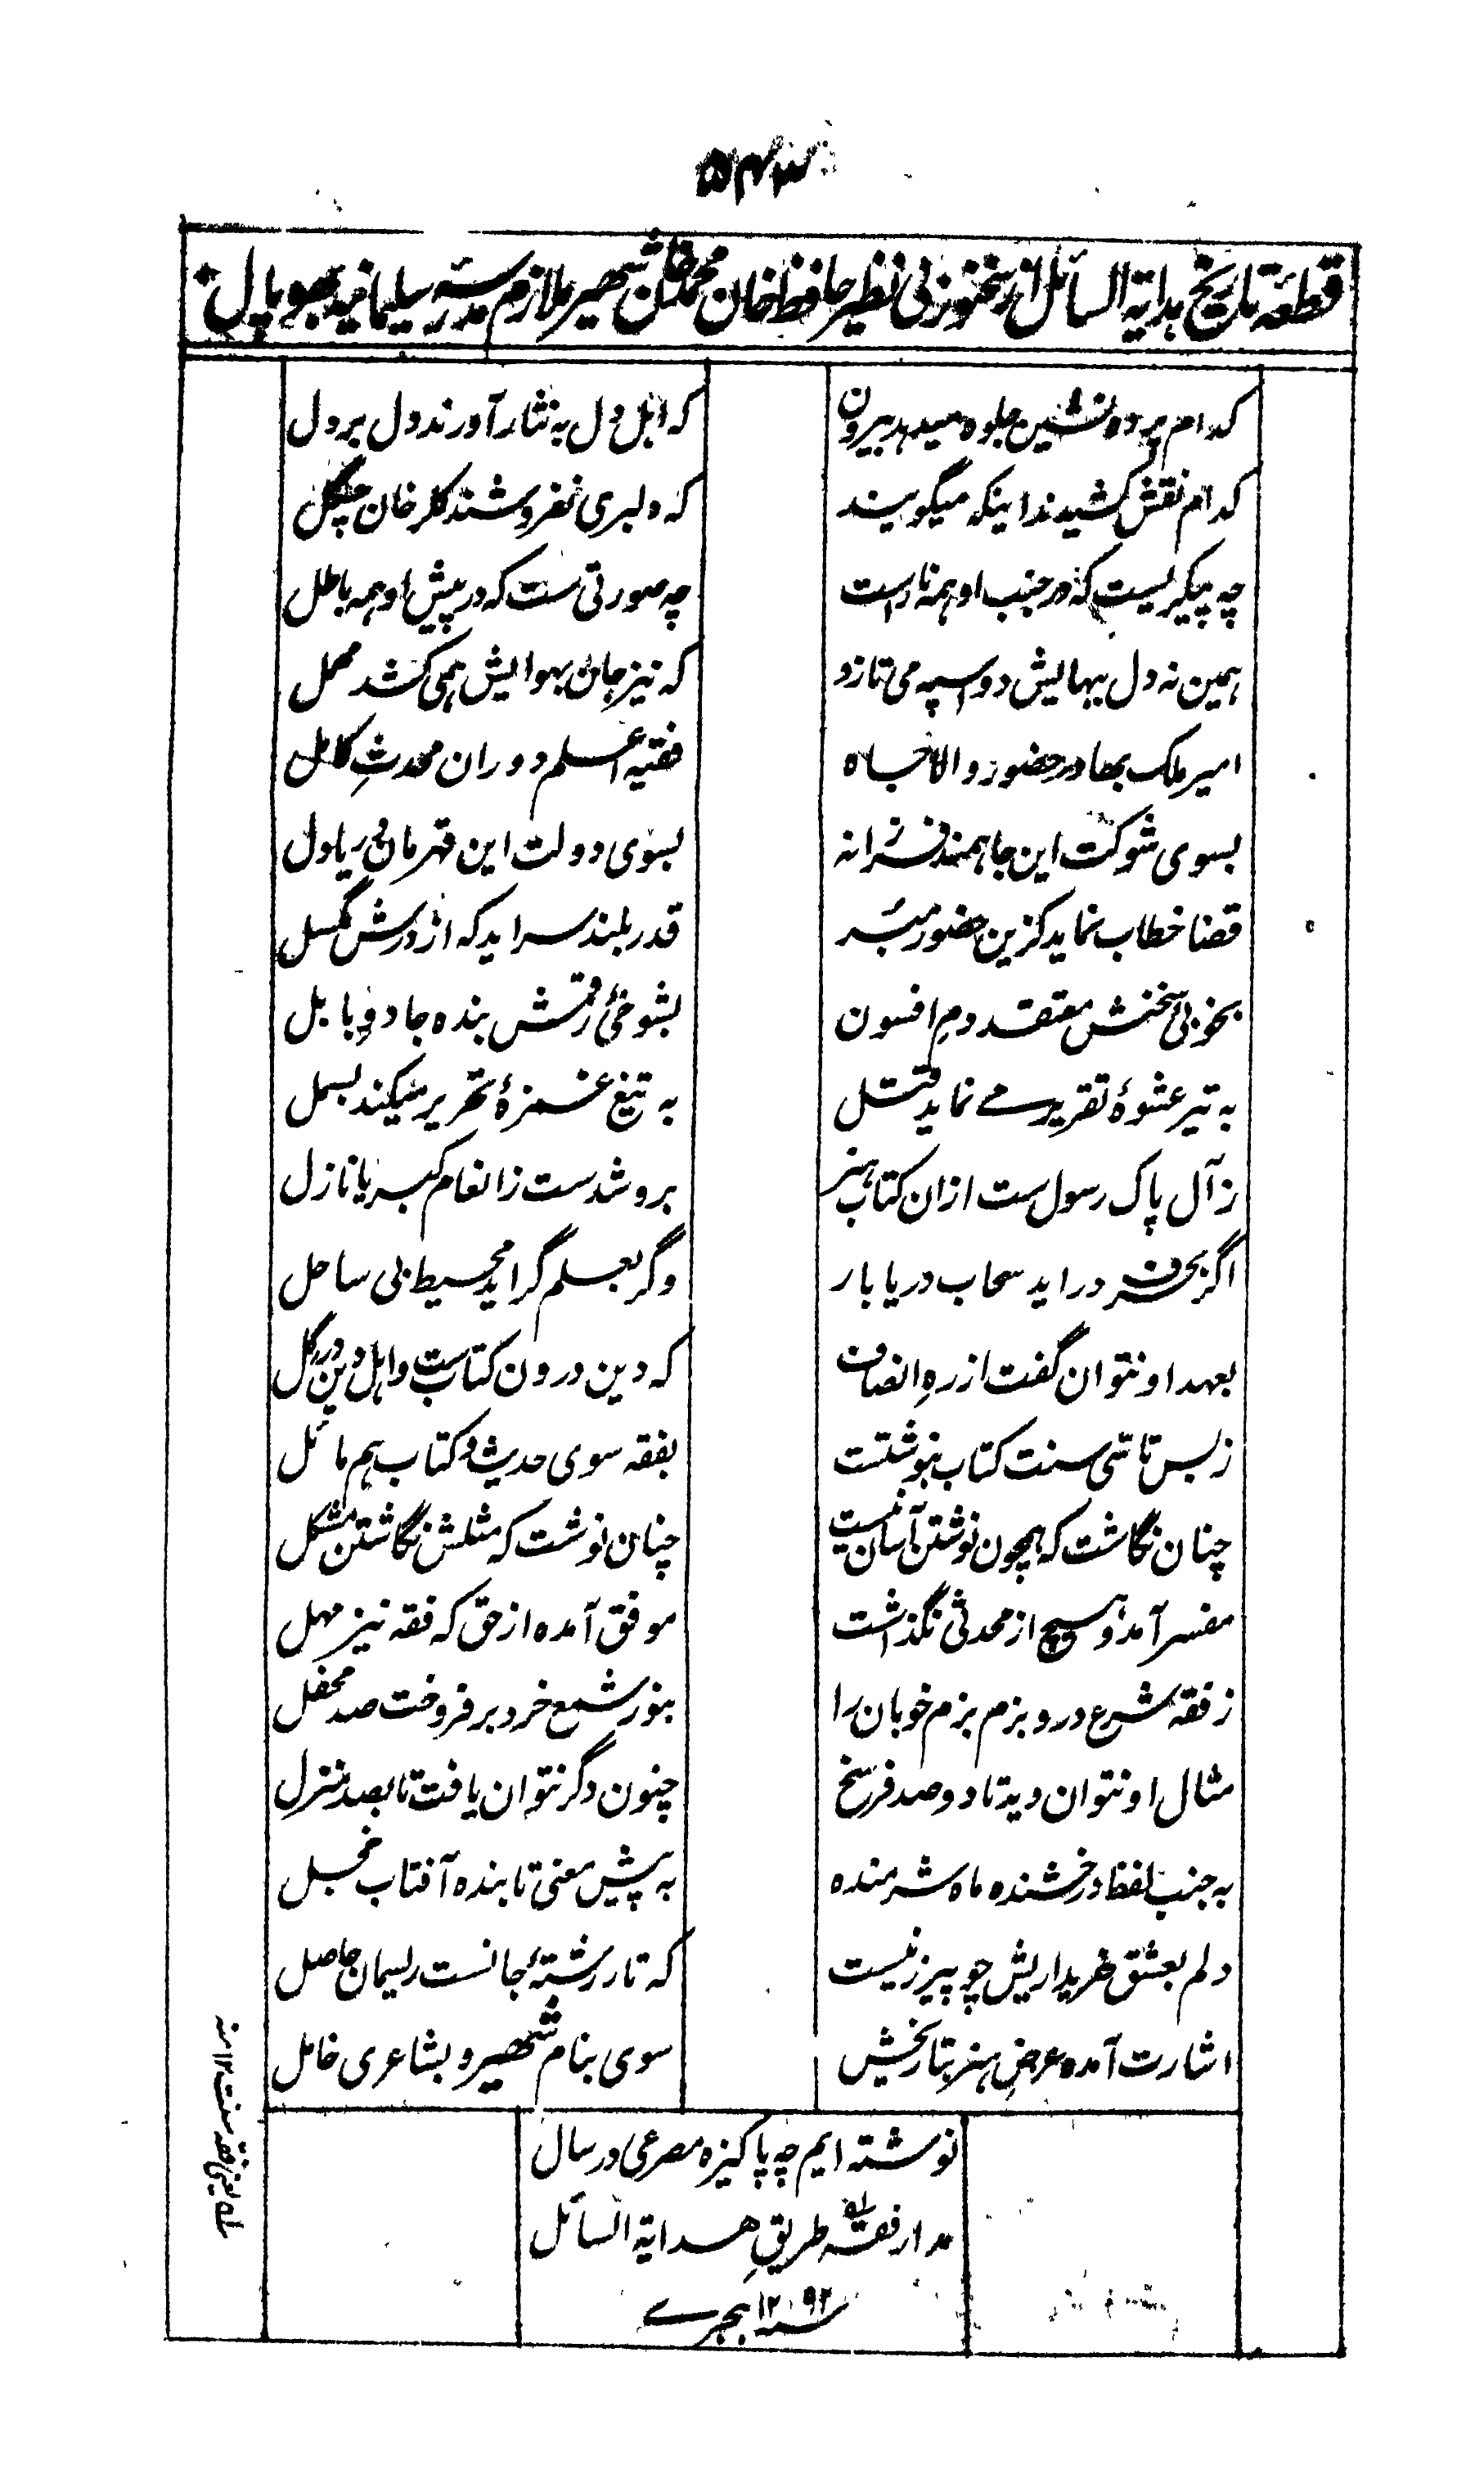 قطعۀ تاریخ هدایة السائل از سخنور بی نظیر حافظ خان محمد خان شهیر ملازم مدرسۀ سلیمانیه بهوپال
کدام پرده نشین جلوه میدهد بیرون که اهل دل به نثار آورند دل بر دل
کدام نقش کشیدند اینکه میگویند که دلبری نفروشند گلرخان چگل
چه پیکریست که در جنب او همه ناراست چه صورتی ست که در پیش او همه باطل
همین نه دل ببهایش دو اسپه می تازد که نیز جان بهوایش همی کشد محمل
امیر ملک بهادر حضور والا جاه فقیه اعلم دوران محدثِ کامل
بسوی شوکت این جاهمند فرزانه بسوی دولت این قهرمان دریا دل
قضا خطاب نماید کزین حضور مبر قدر بلند سراید که از درش مگسل
بخوبیٔ سخنش معتقد دمِ افسون بشوخیٔ رقمش بنده جادوِ بابل
به تیر عشوۀ تقریر می نماید قتل به تیغ غمزۀ تحریر میکند بسمل
ز آل پاک رسول ست ازان کتاب هنر برو شدست ز انعام کبریا نازل
اگر بحرف دراید سحاب دریا بار وگر بعلم گراید محیط بی ساحل
بعهد او نتوان گفت از رهِ انصاف که دین درون کتابست و اهل دین در گل
ز بس تاسّی سنت کتاب بنوشتست بفقه سوی حدیث و کتاب هم مائل
چنان نگاشت که همچون نوشتن آسان نیست چنان نوشت که مثلش نگاشتن مشکل
مفسر آمد و هیچ از محدثی نگذاشت موفق آمده از حق که فقه نیز مهل
ز فقه شرع درو بزم بزم خوبان را بنور شمع خرد بر فروخت صد محفل
مثال او نتوان دید تا دو صد فرسخ چنون دگر نتوان یافت تا بصد منزل
به جنب لفظ درخشنده ماه شرمنده به پیش معنی تابنده آفتاب خجل
دلم بعشق خریداریش چو پیرزنیست که تار رشتۀ جانست ریسمان حاصل
اشارت آمده عرضِ هنر بتاریخش سوی بنام شهیر و بشاعری خامل
نوشته ایم چه پاکیزه مصرعی در سال
مدار فقه طریقِ هدایة السائل
سنه ۱۲۹۲ هجری
له یعنی فقه سنت ۱۲ منه